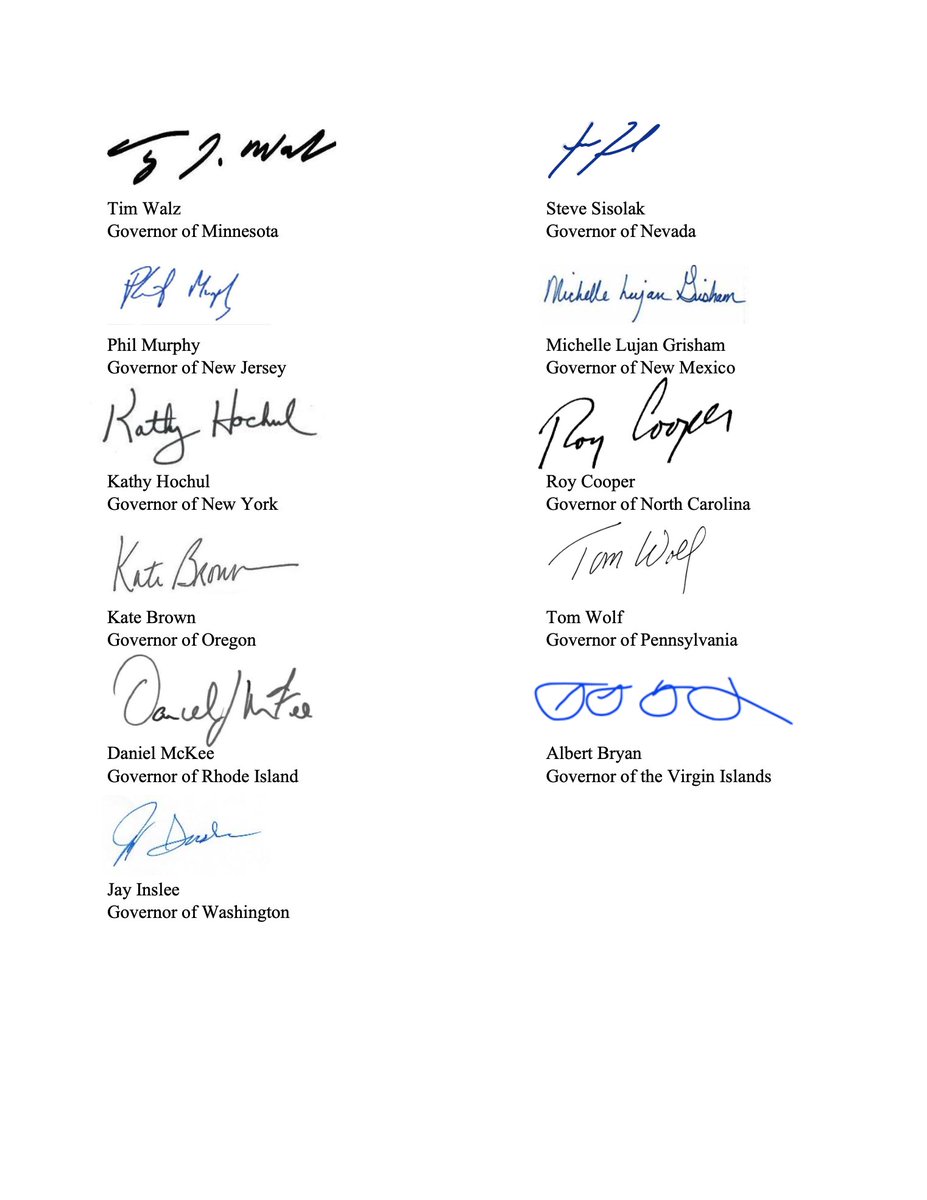 Tim J. Walz
Tim Walz
Governor of Minnesota
Steve Sisolak
Governor of Nevada
Phil Murphy
Phil Murphy
Governor of New Jersey
Michelle Lujan Grisham
Michelle Lujan Grisham
Governor of New Mexico
Kathy Hochul
Kathy Hochul
Governor of New York
Roy Cooper
Roy Cooper
Governor of North Carolina
Kate Brown
Kate Brown
Governor of Oregon
Tom Wolf
Tom Wolf
Governor of Pennsylvania
Daniel J McKee
Daniel McKee
Governor of Rhode Island
Albert Bryan
Governor of the Virgin Islands
Jay Inslee
Governor of Washington